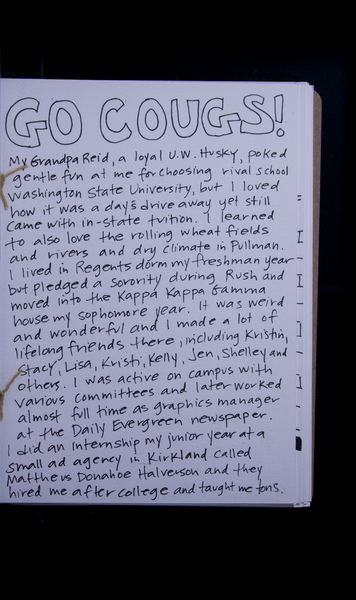 GO COUGS!
My Grandpa Reid, a loyal U.W. Husky, poked
gentle fun at me for choosing rival school
Washington State University, but I loved
how it was a day's drive away yet still
came with in-state tuition. I learned
to also love the rolling wheat fields
and rivers and dry climate in Pullman.
I lived in Regents dorm my freshman year
but pledged a Sorority during Rush and
moved into the Kappa Kappa Gamma
house my sophomore year. It was weird
and wonderful and I made a lot of
lifelong friends there, including Kristin,
Stacy, Lisa, Kristi, Kelly, Jen, Shelley and
others. I was active on campus with
various committees and later worked
almost full time as graphics manager
at the Daily Evergreen newspaper.
I did an internship my junior year at a
small ad agency in Kirkland called
Matthews Donahoe Halverson and they
hired me after college and taught me tons.